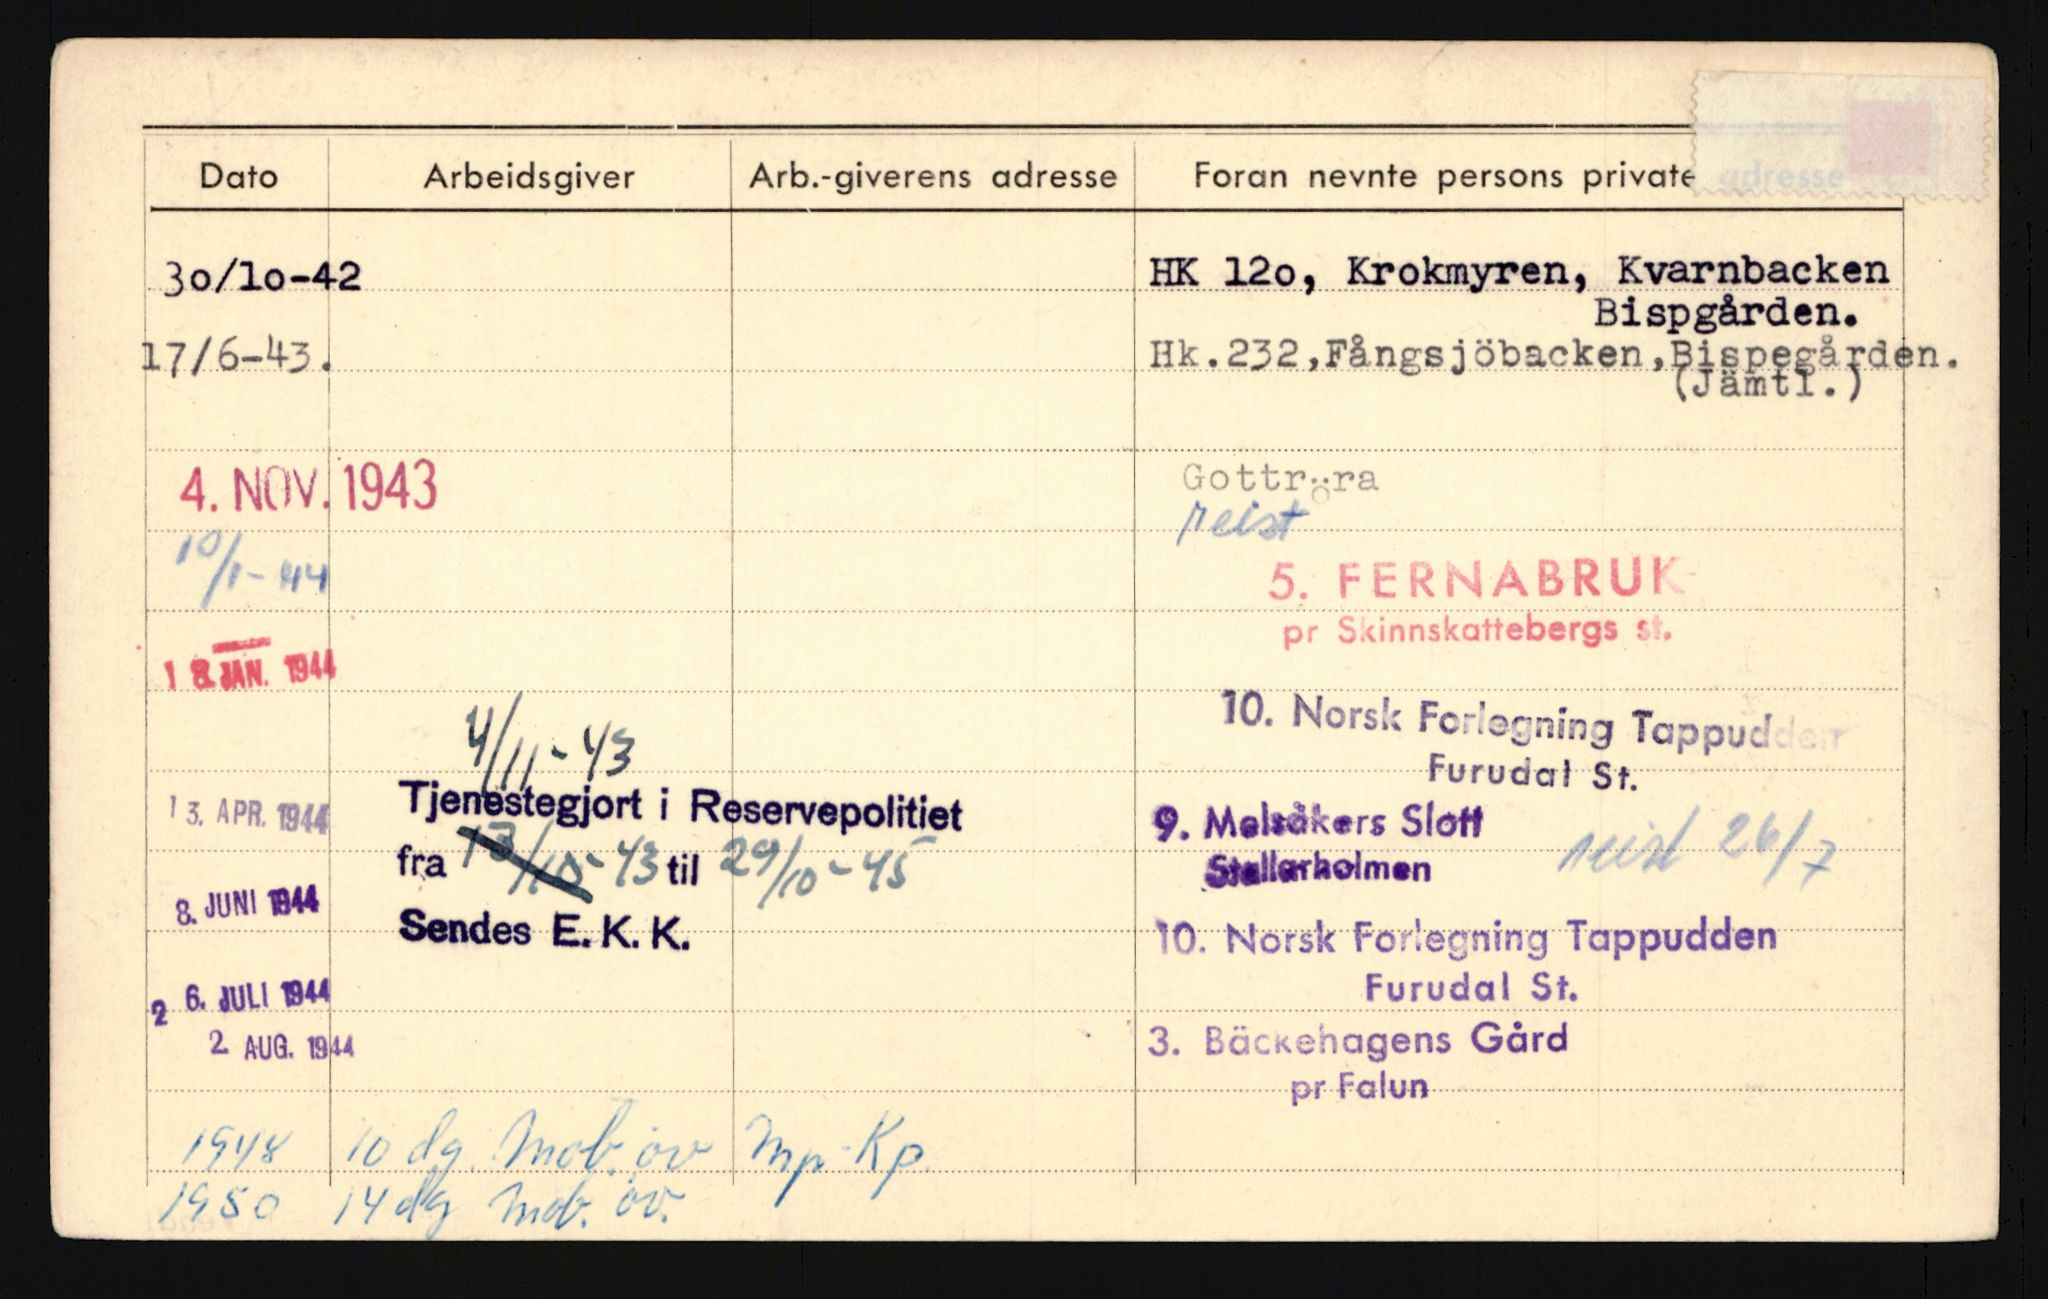 Dato Arbeidsgiver Arb.-giverens adresse Foran nevnte persons private adresse
3o/1o-42 HK 12o, Krokmyren, Kvarnbacken
Bispgården.
17/6-43. Hk.232,Fångsjöbacken,Bispegården.
(Jämtl.)
4. NOV. 1943 Gottröra
reist
10/1-44
5. FERNABRUK
pr Skinnskattebergs st.
18. JAN. 1944
10. Norsk Forlegning Tappudden
Furudal St.
4/11-43
13. APR. 1944 Tjenestegjort i Reservepolitiet 9. Malsåkers Slott
fra 13/10-43 til 29/10-45 Stallarholmen reist 26/7
8. JUNI 1944 Sendes E. K. K. 10. Norsk Forlegning Tappudden
Furudal St.
26. JULI 1944
2. AUG. 1944 3. Bäckehagens Gård
pr Falun
1948 10 dg. Mob. öv Mp-Kp.
1950 14 dg Mob. öv.